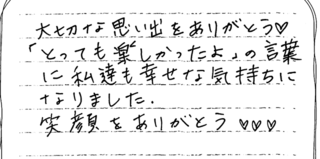 大切な思い出をありがとう♡
「とっても楽しかったよ」の言葉
に私達も幸せな気持ちに
なりました.
笑顔をありがとう ♡♡♡